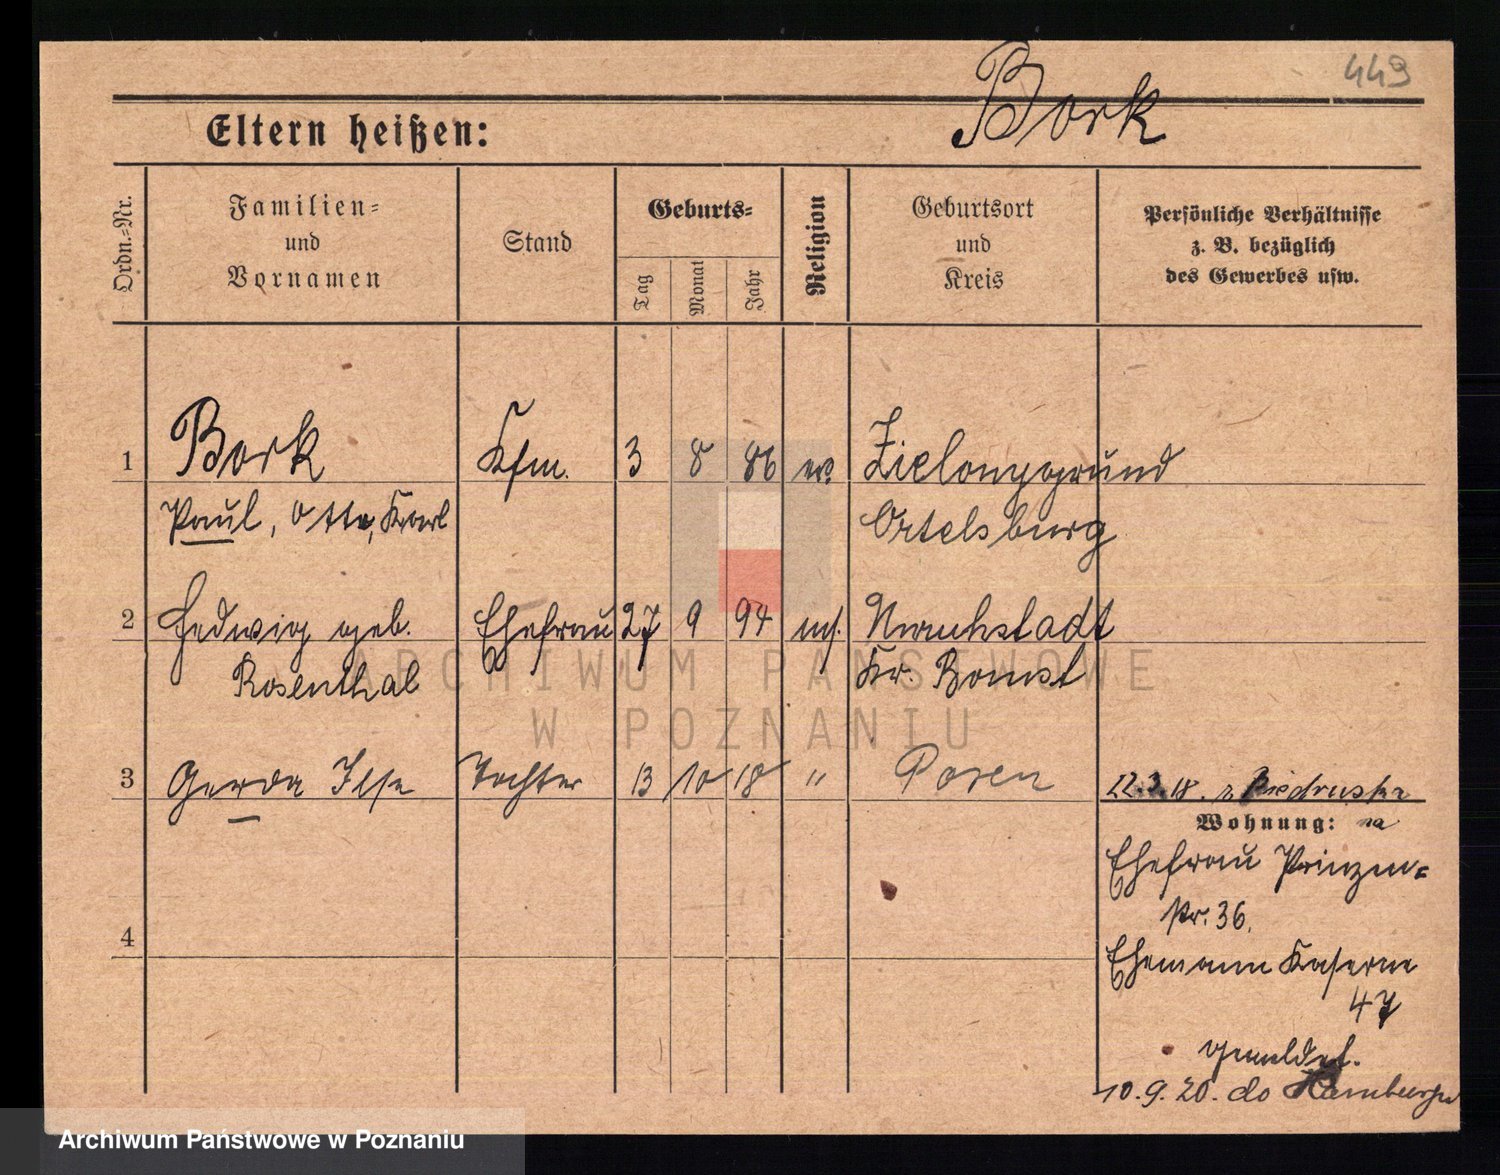 449
Bork
Eltern heißen:
Ordn.-Nr.
Familien-
und
Vornamen
Stand
Geburts-
Tag
Monat
Jahr
Religion
Geburtsort
und
Kreis
Persönliche Verhältnisse
z. B. bezüglich
des Gewerbes usw.
1 Bork Kfm. 3 8 86 ev. Zielonygrund
Paul, Otto, Karl Ortelsburg
2 Hedwig geb. Ehefrau 27 9 94 ms. Unruhstadt
Rosenthal Kr. Bomst
3 Gerda Ilse Tochter 13 10 18 " Posen
22.3.18. z Biedruska
Wohnung: na
Ehefrau Prinzen-
str. 36.
4
Ehemann Kaserne
47
gemeldet.
10.9.20. do Hamburga
ARCHIWUM PAŃSTWOWE
W POZNANIU
Archiwum Państwowe w Poznaniu